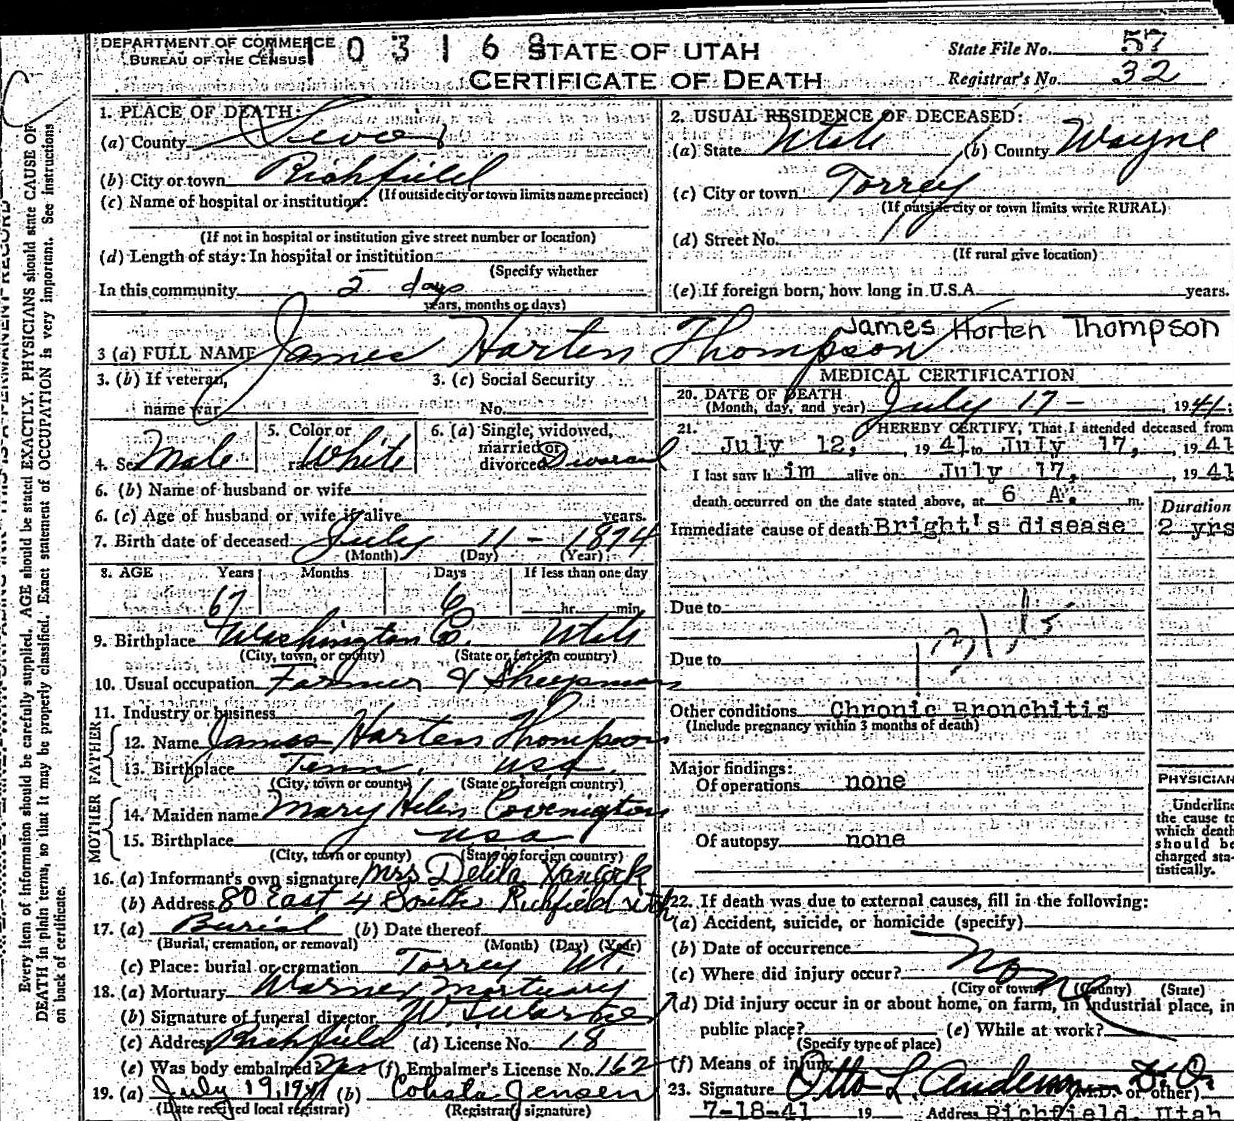 DEPARTMENT OF COMMERCE
BUREAU OF THE CENSUS
STATE OF UTAH
CERTIFICATE OF DEATH
State File No. 57
Registrar's No. 32
1. PLACE OF DEATH:
(a) County Sevier
(b) City or town Richfield
(If outside city or town limits name precinct)
(c) Name of hospital or institution:
(If not in hospital or institution give street number or location)
(d) Length of stay: In hospital or institution
(Specify whether
In this community 5 days
years, months or days)
2. USUAL RESIDENCE OF DECEASED:
(a) State Utah (b) County Wayne
(c) City or town Torrey
(If outside city or town limits write RURAL)
(d) Street No.
(If rural give location)
(e) If foreign born, how long in U.S.A. years.
James Horten Thompson
3 (a) FULL NAME James Harten Thompson
3. (b) If veteran, name war
3. (c) Social Security No.
4. Sex Male
5. Color or race White
6. (a) Single, widowed, married or divorced Divorced
6. (b) Name of husband or wife
6. (c) Age of husband or wife if alive years.
7. Birth date of deceased July 11 - 1874
(Month) (Day) (Year)
8. AGE Years Months Days If less than one day
67 6 hr. min.
9. Birthplace Washington Co. Utah
(City, town, or county) (State or foreign country)
10. Usual occupation Farmer & Sheepman
11. Industry or business
FATHER
12. Name James Harten Thompson
13. Birthplace Tenn. USA.
(City, town or county) (State or foreign country)
MOTHER
14. Maiden name Mary Helen Covenigton
15. Birthplace USA
(City, town or county) (State or foreign country)
16. (a) Informant's own signature Mrs Delila Hancock
(b) Address 80 East 4 South Richfield Utah
17. (a) Burial (b) Date thereof
(Burial, cremation, or removal) (Month) (Day) (Year)
(c) Place: burial or cremation Torrey Ut.
18. (a) Mortuary Warner Mortuary
(b) Signature of funeral director
(c) Address Richfield (d) License No. 18
(e) Was body embalmed? Yes (f) Embalmer's License No. 162
19. (a) July 19, 1941 (b) Jensen
(Date received local registrar) (Registrar's signature)
MEDICAL CERTIFICATION
20. DATE OF DEATH
(Month, day, and year) July 17 - , 1941;
21. I HEREBY CERTIFY, That I attended deceased from
July 12, , 1941 to July 17, , 1941
I last saw h im alive on July 17, , 1941
death occurred on the date stated above, at 6 A. m.
Duration
Immediate cause of death Bright's disease 2 yrs
Due to
Due to
Other conditions Chronic Bronchitis
(Include pregnancy within 3 months of death)
Major findings:
Of operations none
Of autopsy none
PHYSICIAN
Underline
the cause to
which death
should be
charged sta-
tistically.
22. If death was due to external causes, fill in the following:
(a) Accident, suicide, or homicide (specify)
(b) Date of occurrence
(c) Where did injury occur? None
(City or town) (County) (State)
(d) Did injury occur in or about home, on farm, in industrial place, in
public place? (e) While at work?
(Specify type of place)
(f) Means of injury
23. Signature Otto L. Anderson D.O.
(M.D. or other)
7-18-41 19 Address Richfield, Utah
Every item of information should be carefully supplied. AGE should be stated EXACTLY. PHYSICIANS should state CAUSE OF
DEATH in plain terms, so that it may be properly classified. Exact statement of OCCUPATION is very important. See instructions
on back of certificate.